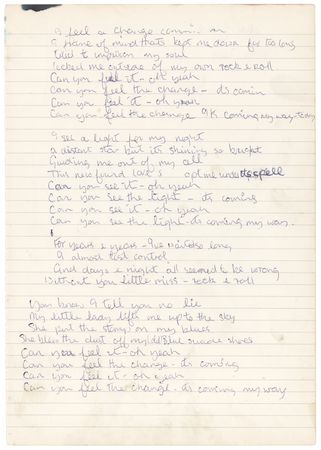 I feel a change comin on
A frame of mind thats kept me down for too long
Tried to imprison my soul
locked me outside of my own rock & roll
Can you feel it - oh yeah
Can you feel the change - its comin
Can you feel it - oh yeah
Can you feel the change coming my way today
I see a light for my night
a distant star but its shining so bright
Guiding me out of my cell
This new found love's got me under its spell
Can you see it - oh yeah
Can you see the light - its coming
Can you see it - oh yeah
Can you see the light its coming my way.
For years & years - I've waited so long
I almost lost control
And days & night all seemed to be wrong
Without you little miss - rock & roll
You know I tell you no lie
My little baby lifts me up to the sky
She put the stomp on my blues
She blew the dust off my old Blue suede shoes
Can you feel it - oh yeah
Can you feel the change - its coming
Can you feel it - oh yeah
Can you feel the change - its coming my way